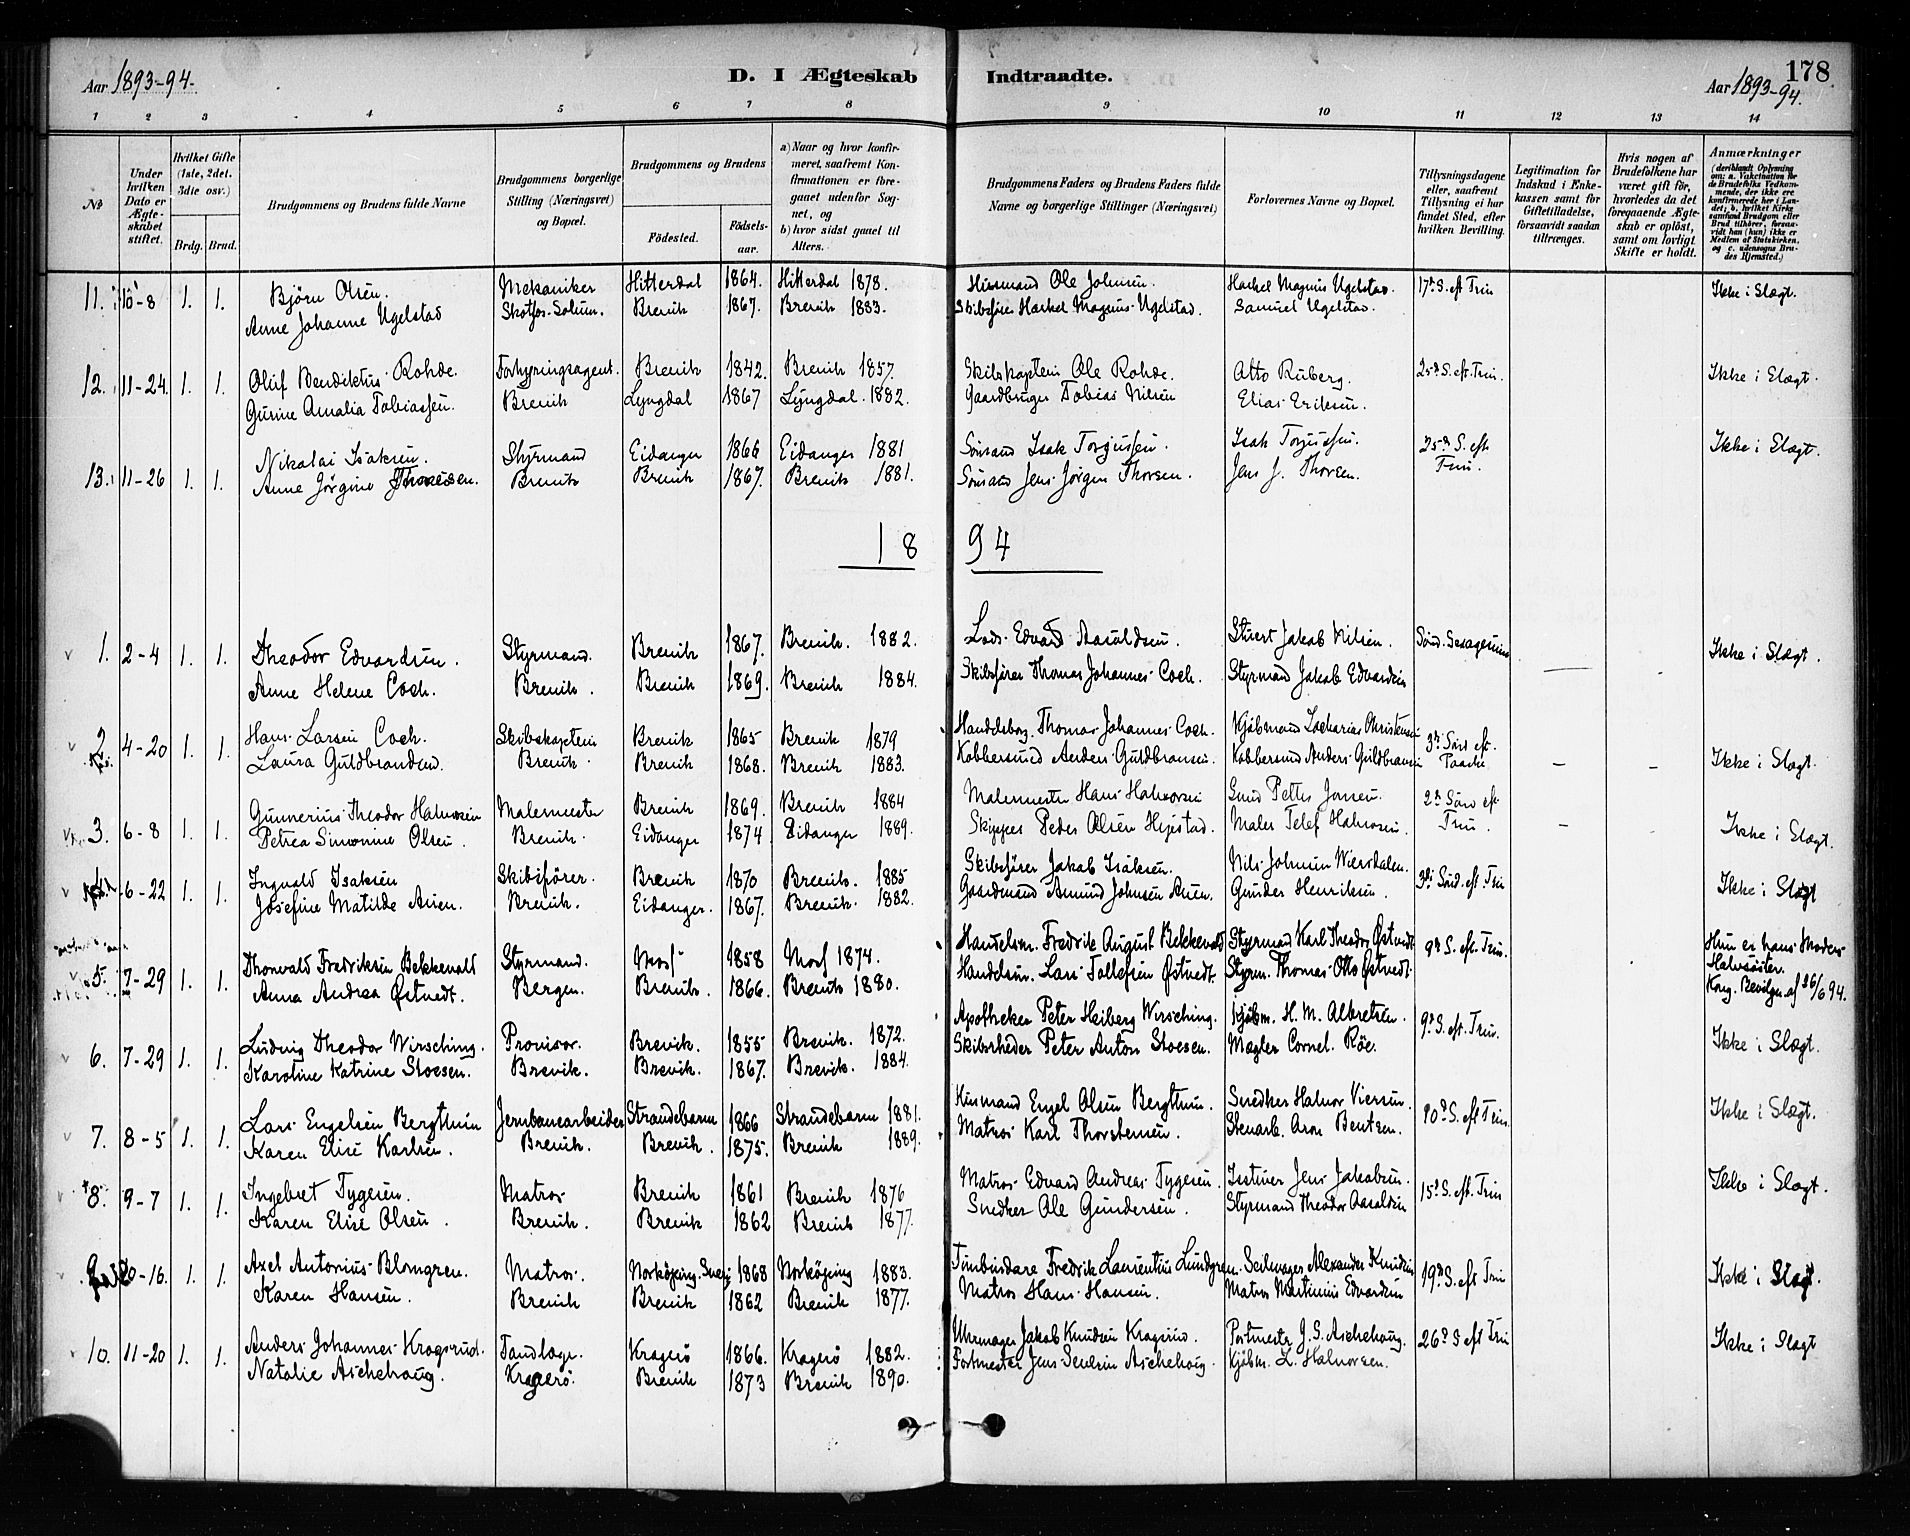 178
Aar 1893-94.
D. I Ægteskab Indtraadte.
Aar 1893-94.
1 2 3 4 5 6 7 8 9 10 11 12 13 14
No
Under hvilken Dato er Ægteskabet stiftet.
Hvilket Gifte (1ste, 2det, 3die osv.)
Brdg. Brud.
Brudgommens og Brudens fulde Navne
Brudgommens borgerlige Stilling (Næringsvei) og Bopæl.
Brudgommens og Brudens
Fødested. Fødselsaar.
a) Naar og hvor konfirmeret, saafremt Konfirmationen er foregaaet udenfor Sognet, og
b) hvor sidst gaaet til Alters.
Brudgommens Faders og Brudens Faders fulde Navne og borgerlige Stillinger (Næringsvei)
Forlovernes Navne og Bopæl.
Tillysningsdagene eller, saafremt Tillysning ei har fundet Sted, efter hvilken Bevilling.
Legitimation for Indskud i Enkekassen samt for Giftetilladelse, forsaavidt saadan tiltrænges.
Hvis nogen af Brudefolkene har været gift før, hvorledes da det foregaaende Ægteskab er opløst, samt om lovligt Skifte er holdt.
Anmærkninger (deriblandt Oplysning om: a. Vakcination for de Brudefolks Vedkommende, der ikke ere konfirmerede her i Landet; b. hvilket Kirkesamfund Brudgom eller Brud tilhører, forsaavidt han (hun) ikke er Medlem af Statskirken, og c. udensogns Brudes Hjemsted.)
11. 10-8 1. 1. Bjørn Olsen. Mekaniker Hitterdal 1864. Hitterdal 1878. Husmand Ole Johnsen. Harkel Magnus Ugelstad. 17d S. eft Trin Ikke i Slægt.
Anne Johanne Ugelstad Skotfos-Solum. Brevik 1867. Brevik 1883. Skibsfører Harkel Magnus Ugelstad. Samuel Ugelstad.
12. 11-24. 1. 1. Oluf Bendiktus Rohde. Forhyringsagent. Brevik 1842. Brevik 1857. Skibskaptein Ole Rohde. Otto Ruberg. 25d S. eft. Trin. Ikke i Slægt.
Gurine Amalia Tobiassen. Brevik Lyngdal 1867 Lyngdal. 1882. Gaardbruger Tobias Nilsen Elias Eriksen.
13. 11-26 1. 1. Nikolai Isaksen. Styrmand Eidanger 1866 Eidanger 1881 Sømand Isak Torgussen. Isak Torgussen. 25d S. eft Trin. Ikke i Slægt.
Anne Jørgine Thorsen. Brevik Brevik 1867. Brevik 1881. Sømand Jens Jørgen Thorsen. Jens J. Thorsen.
1894
1. 2-4 1. 1. Theodor Edvardsen. Styrmand. Brevik 1867. Brevik. 1882. Lods Edvard Aaroldsen. Stuert Jakob Nilsen. Sønd. Sexagesima Ikke i Slægt.
Anne Helene Coch. Brevik. Brevik 1869. Brevik 1884. Skibsfører Thomas Johannes Coch. Styrmand Jakob Edvardsen —
2. 4-20 1. 1. Hans Larsen Coch. Skibskaptein Brevik 1865 Brevik 1879 Handelsborg. Thomas Johannes Coch. Kjøbmand Zacharias Christensen 3di Sønd eft. Paaske — — Ikke i Slægt.
Laura Guldbrandsen. Brevik. Brevik 1868. Brevik 1883. Kobbersmed Anders Guldbransen. Kobbersmed Anders Guldbransen
3. 6-8 1. 1. Gunnerius Theodor Halvorsen Malermester Brevik 1869. Brevik 1884 Malermester Hans Halvorsen Smed Petter Jensen. 2d Sønd eft Trin. — Ikke i Slægt.
Petrea Simonine Olsen. Brevik. Eidanger 1874. Eidanger 1889. Skipper Peder Olsen Hejstad. Maler Telef Halvorsen.
6-22 1. 1. Ingvald Isaksen Skibsfører. Brevik 1870 Brevik. 1885 Skibsfører Jakob Isaksen. Nils Johnsen Wiersdalen. 3di Sønd. eft Trin Ikke i Slægt
Josefine Matilde Auen. Brevik. Eidanger. 1867. Brevik. 1882. Gaardmand Amund Johnsen Auen. Gunder Henriksen.
5. 7-29 1. 1. Thorvald Fredriksen Bekkevold Styrmand. Moss 1858 Moss 1874. Handelsm. Fredrik August Bekkevold Styrmand Karl Theodor Østvedt 9d S. eft. Trin. Hun er hans Moders Halvsøster. Kong. Bevilgn. af 26/6 94.
Anna Andrea Østvedt. Bergen. Brevik. 1866. Brevik 1880. Handelsm. Lars Tollefsen Østvedt. Styrm. Thomas Otto Østvedt.
6. 7-29 1. 1. Ludvig Theodor Wirsching. Provisor. Brevik. 1855 Brevik. 1872. Apotheker Peter Heiberg Wirsching. Kjøbm. H. M. Albretsen. 9d S. eft. Trin. Ikke i Slægt.
Karoline Katrine Stoesen. Brevik. Brevik. 1867. Brevik. 1884. Skibsrheder Peter Anton Stoesen. Mægler Cornel. Røe.
7. 8-5 1. 1. Lars Engelsen Bergthun Jernbanearbeider Strandebarm 1866 Strandebarm 1881. Husmand Engel Olsen Bergthun. Snedker Halvor Viersen. 10d S. eft Trin. Ikke i Slægt.
Karen Elise Karlsen. Brevik. Brevik. 1875. Brevik 1889. Matros Karl Thorstensen. Stenarb. Aron Bentsen.
8. 9-7 1. 1. Ingebret Tygesen. Matros Brevik 1861 Brevik 1876 Matros Edvard Andreas Tygesen. Isstuer Jens Jakobsen. 15d S. eft. Trin Ikke i Slægt.
Karen Elise Olsen. Brevik. Brevik 1862 Brevik 1877. Snedker Ole Gundersen. Styrmand Theodor Aaroldsen
9. 10-16. 1. 1. Axel Antonius Blomgren. Matros. Norköping. Sverj 1868 Norköping 1883. Timburdare Fredrik Laurentius Lundgren. Seilmager Alexander Knudsen 19d S. eft Trin Ikke i Slægt.
Karen Hansen. Brevik Brevik 1862 Brevik 1877. Matros Hans Hansen. Matros Martinius Edvardsen
10. 11-20 1. 1. Anders Johannes Kragsrud. Tandlæge. Kragerø 1866. Kragerø 1882. Uhrmager Jakob Knudsen Kragsrud. Portmester J. S. Aschehoug. 26d S eft Trin Ikke i Slægt
Natalie Aschehoug. Kragerø. Brevik 1873 Brevik 1890. Portmester Jens Severin Aschehoug. Kjøbm. L. Halvorsen.